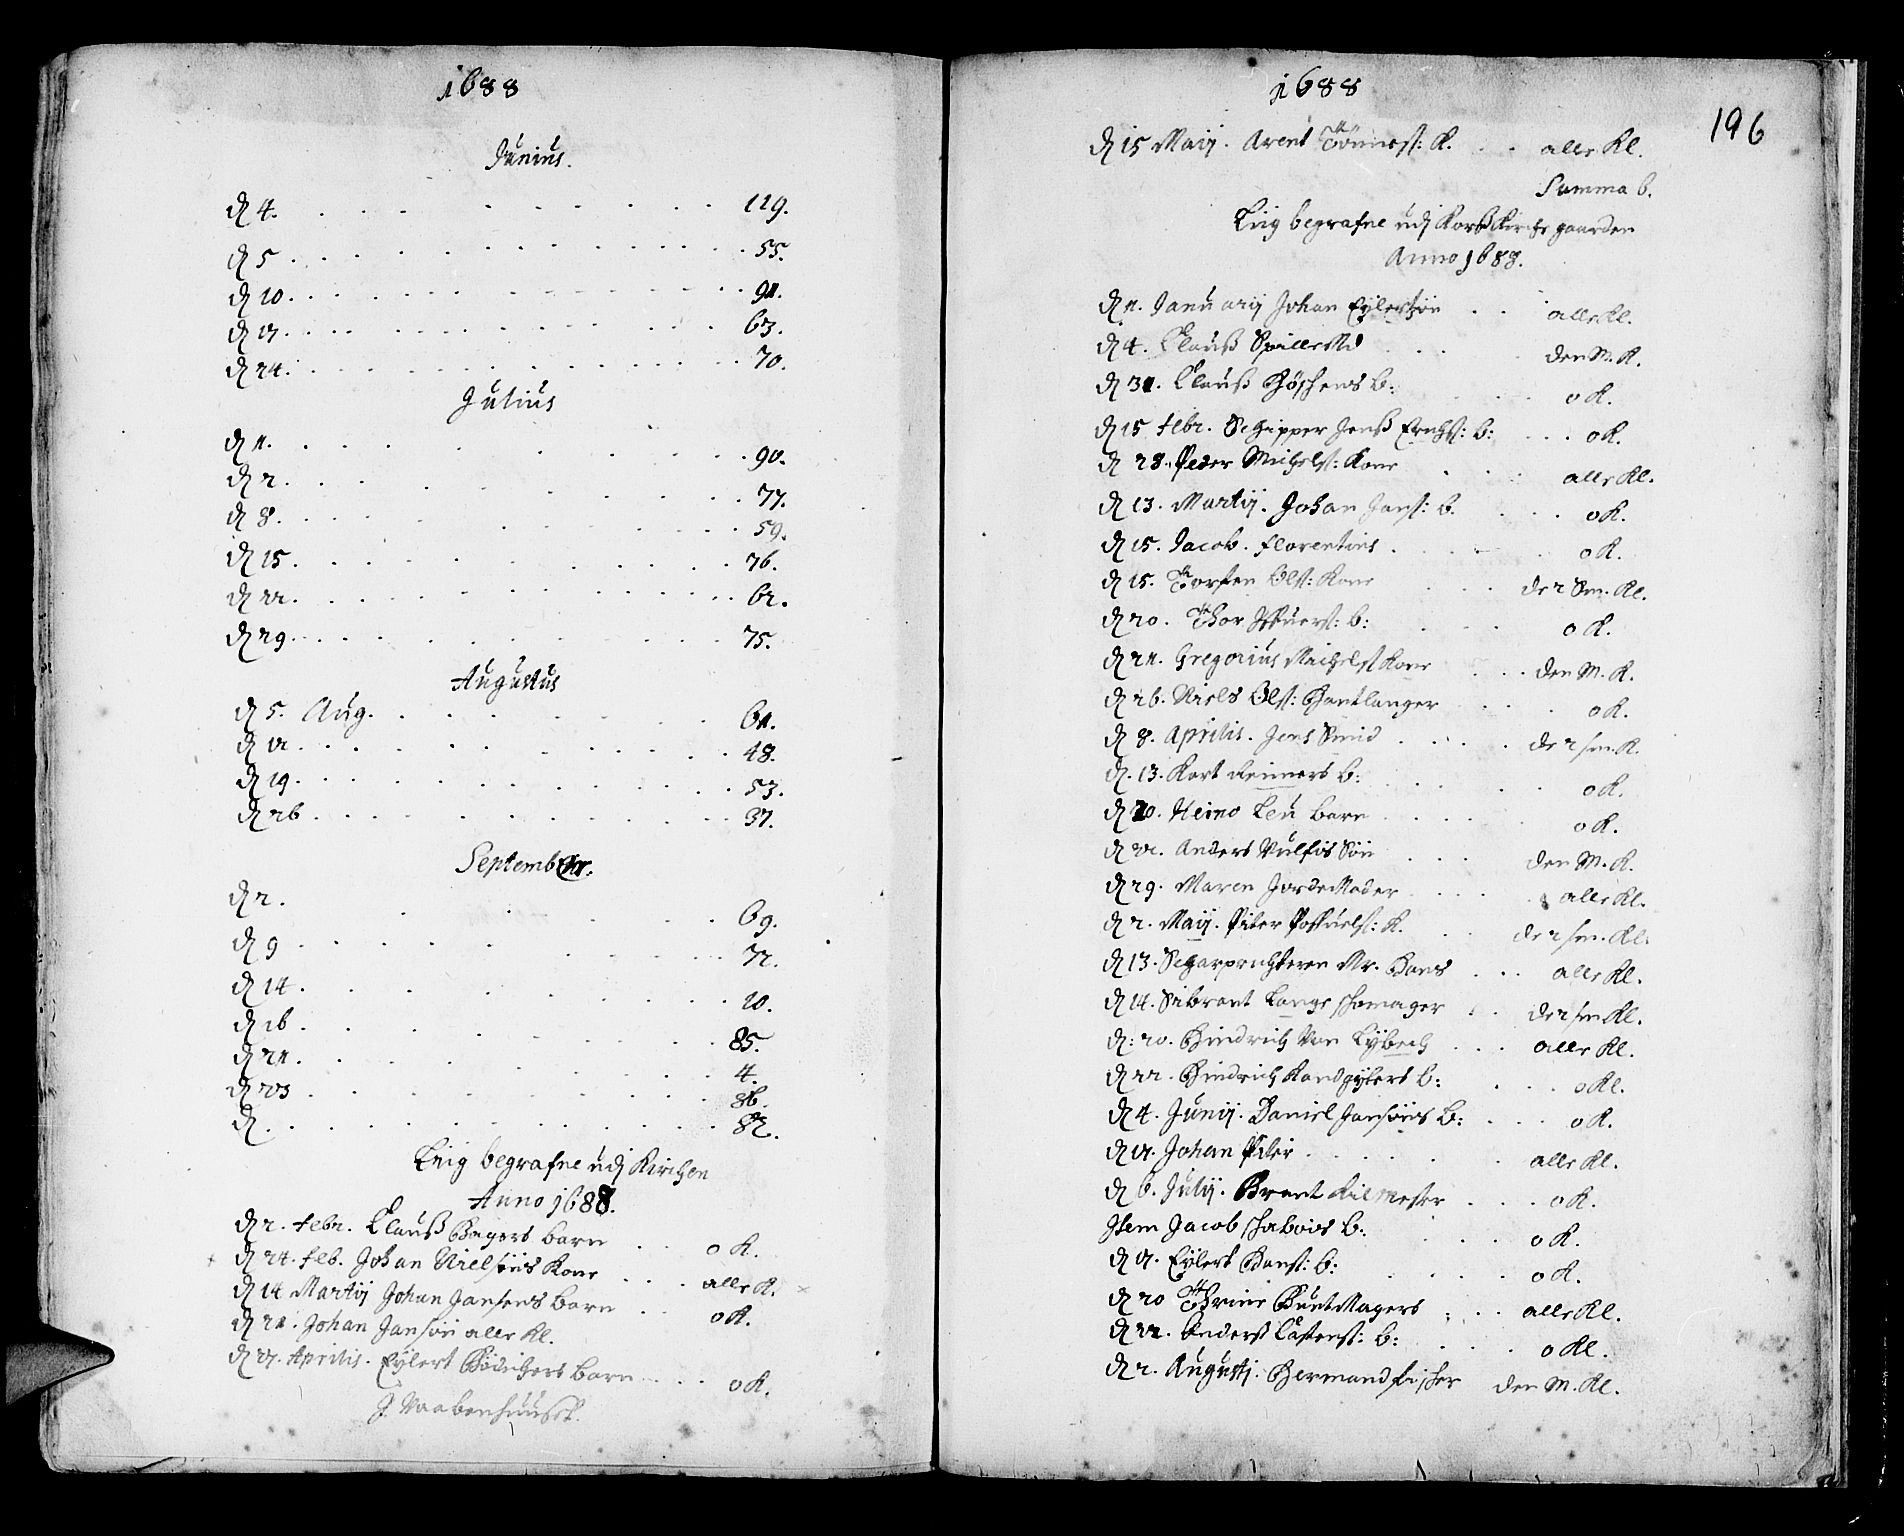 1688
Junius.
d 4. 119.
d 5 . 55.
d 10. 91.
d 17. 63.
d 24. 70.
Julius
d 1. 90.
d 2. 77.
d 8. 59.
d 15. 76.
d 22. 62.
d 29. 75.
Augustus
d 5. Aug. 61.
d 12. 48.
d 19. 53.
d 26. 37.
September.
d 2. 69.
d 9 72.
d 14. 10.
d 16. 85.
d 21. 4.
d 23 86.
d . 82.
Liig begrafne udj Kirchen
Anno 1688.
d 2. febr. Clauß Bagers barn o K.
d 24. feb. Johan Nielsøns Kone alle K.
d 14 Martij Johan Jansens barn o K.
d 21. Johan Jansøn alle Kl.
d 27. Aprilis. Eylert Bødichers barn o K.
J. Vaabenhuuset.
1688
196
d 15 Maij. Arent Tønnesst: K. . . alle Kl.
Summa 6.
Liig begrafne udj Korß Kirche gaarden
Anno 1688.
d 1. Januarij Johan Eylersøn . . alle Kl.
d 4. Clauß Spillemd den M. K.
d 31. Clauß Gøshens b: o K.
d 15 febr. Schipper Jenß b: . . . o K.
d 28. Peder Michelst: Kone alle Kl.
d 13. Martij. Johan Janst: b. o K.
d 15. Jacob. florentins . o K.
d 15. Torsten Olst: Kone de 2 Sm. Kl.
d 20. Thor b: o K.
d 21. Gregorius Michelst Kone . . . den M. K.
d 26. Niels Olst: Hantlanger o K.
d 8. Aprilis. Jens Smid . . . de 2 sm. K.
d. 13. Kort Reimers b: o K.
d 20. Heino Leu barn o K.
d 22. Anders Vulfis Søn den M. K.
d 29. Maren JordeModer alle Kl.
d 2. Maij. Piter K. de 2 sm. Kl.
d 13. Scharprichteren Mr. Hans . . . alle Kl.
d 14. Sibrant Lange shomager . . de 2 sm Kl.
d: 20. Hindrich Von Lybech . . . alle Kl.
d 22. Hindrich Kandgyters b: o Kl.
d 4. Junij. Daniel Jansøns b: . . . o K.
d 17. Johan Piter alle Kl.
d 6. Julij. Brant . . . o K.
Item Jacob b: o K.
d 17. Eylert Hanst: b: o K.
d 20 Thrine BuntMagers . . alle Kl.
d 22. Anderst Castenst: b: o Kl.
d 2. Augustj. Hermand fisher den M. Kl.